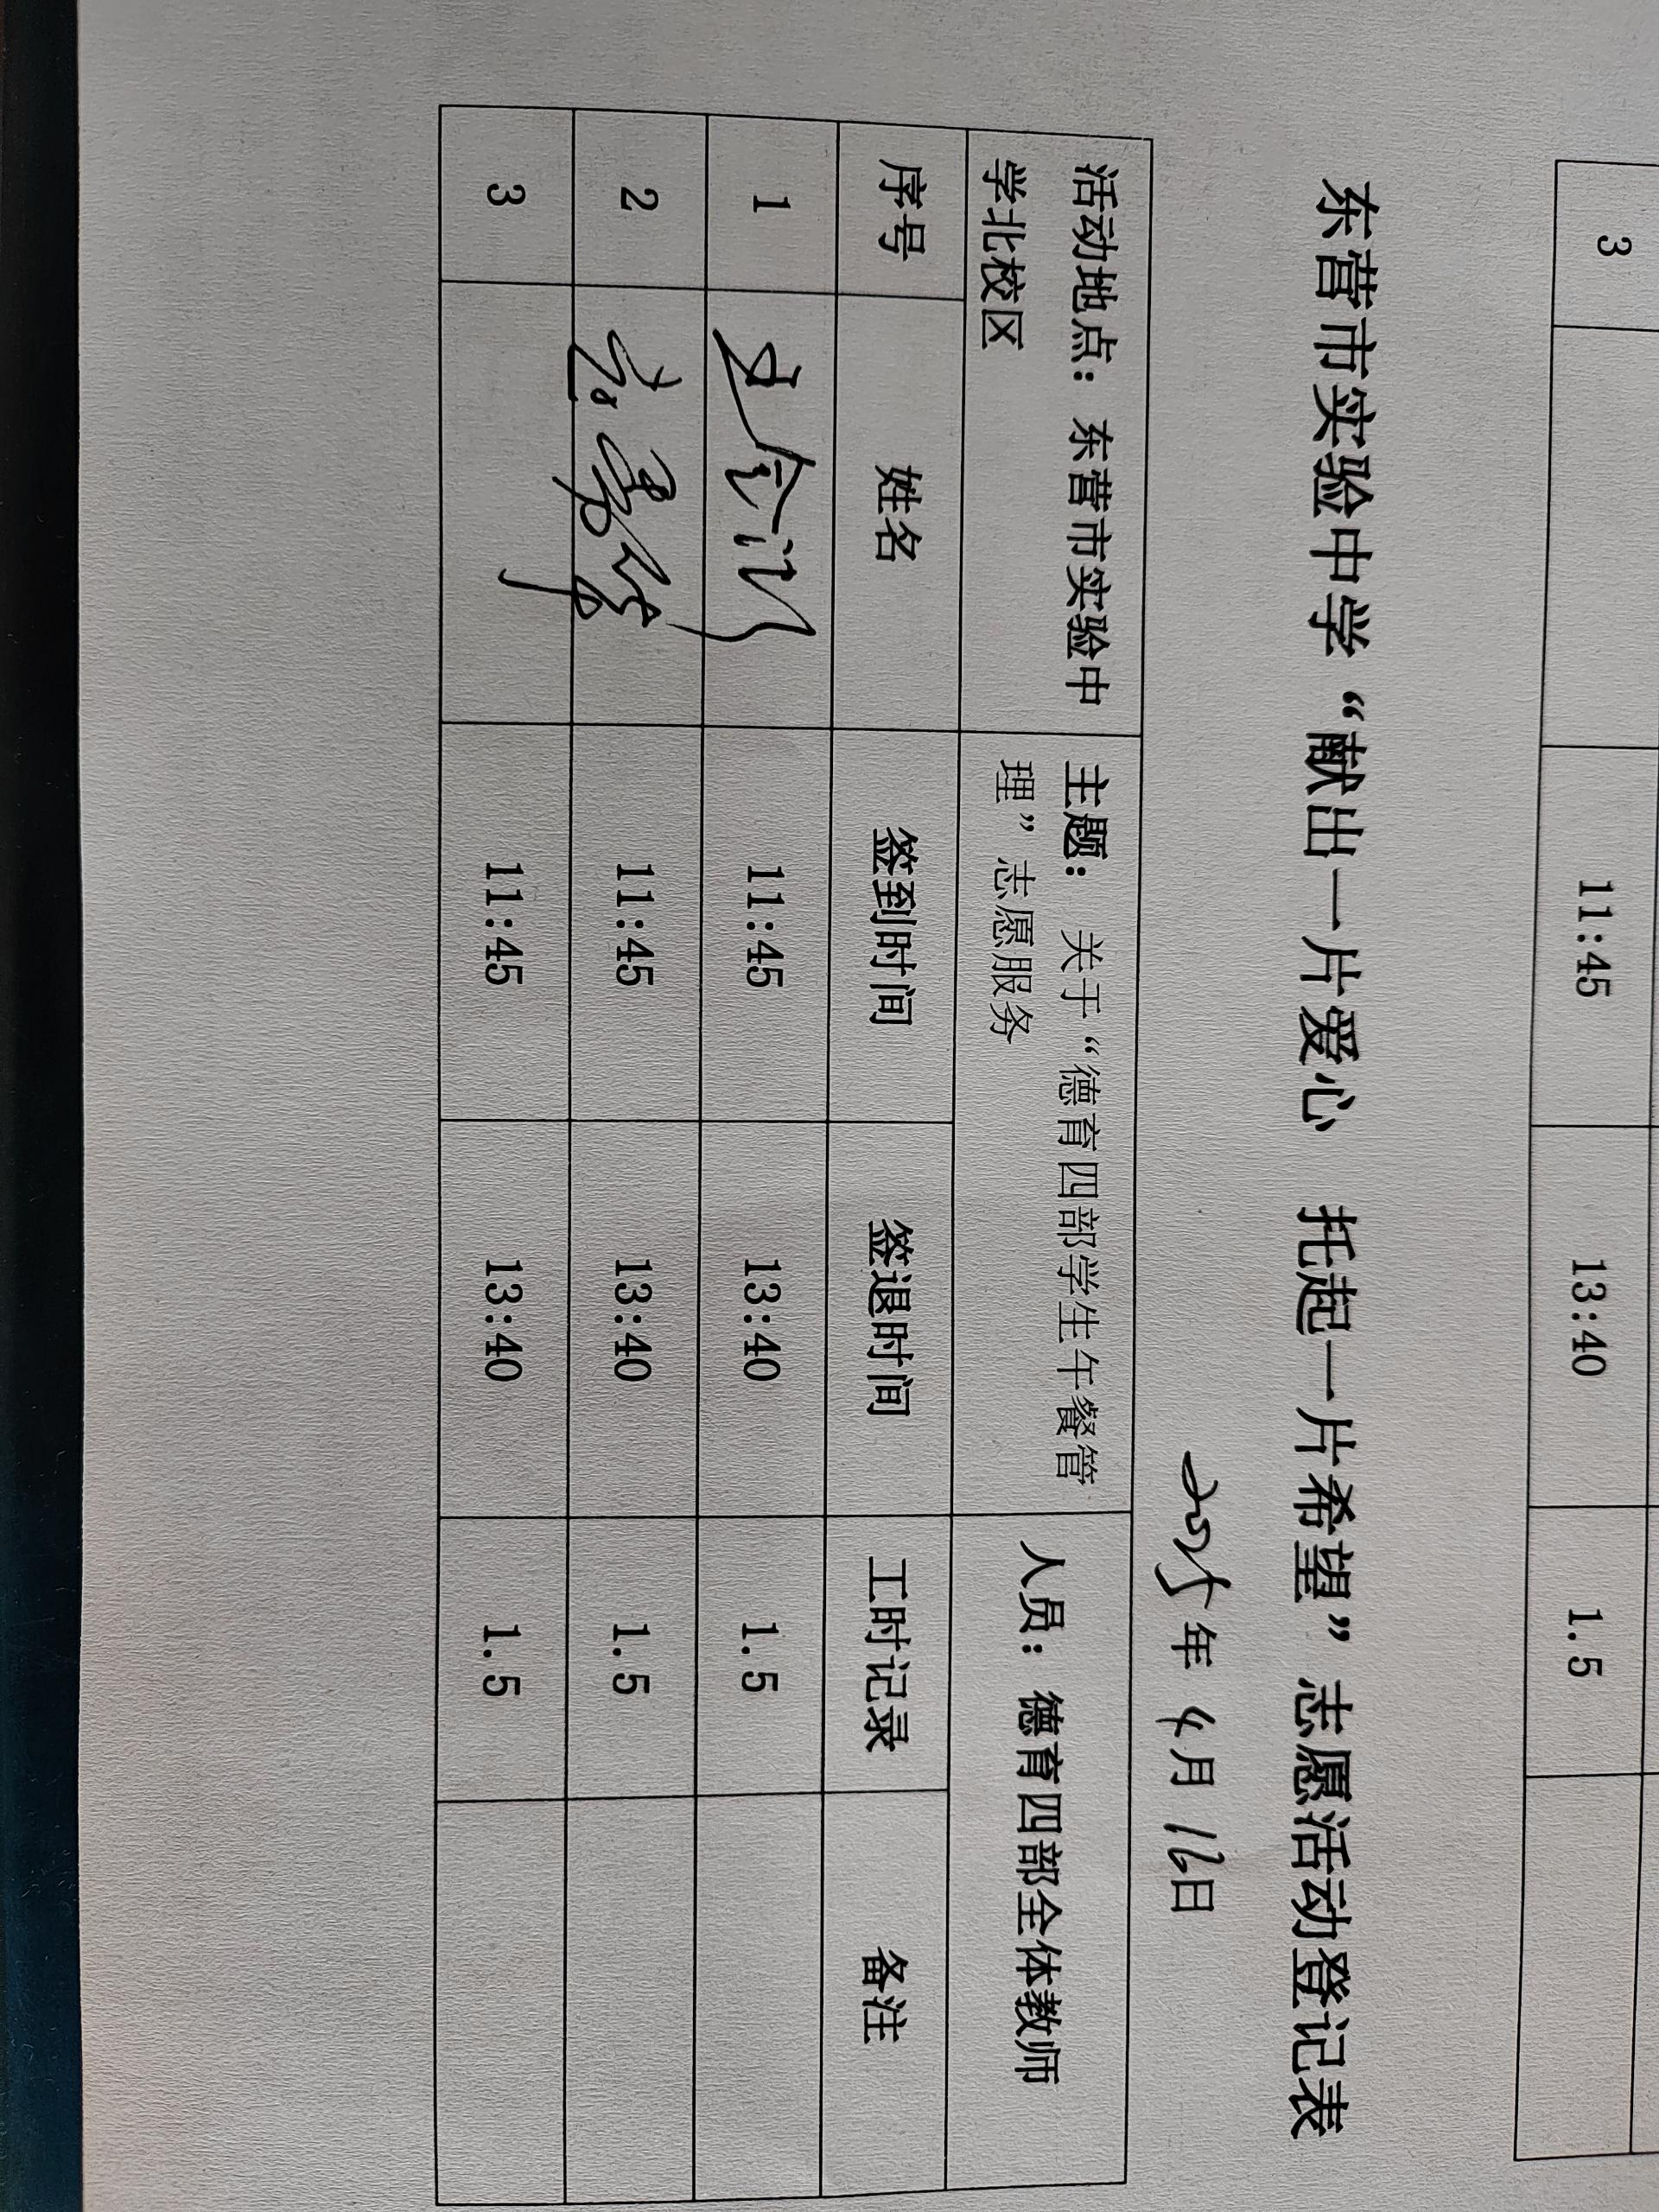 3 11:45 13:40 1.5
东营市实验中学“献出一片爱心 托起一片希望”志愿活动登记表
2025年 4月 16日
活动地点：东营市实验中
学北校区
主题： 关于“德育四部学生午餐管
理”志愿服务
人员：德育四部全体教师
序号 姓名 签到时间 签退时间 工时记录 备注
1 11:45 13:40 1.5
2 11:45 13:40 1.5
3 11:45 13:40 1.5